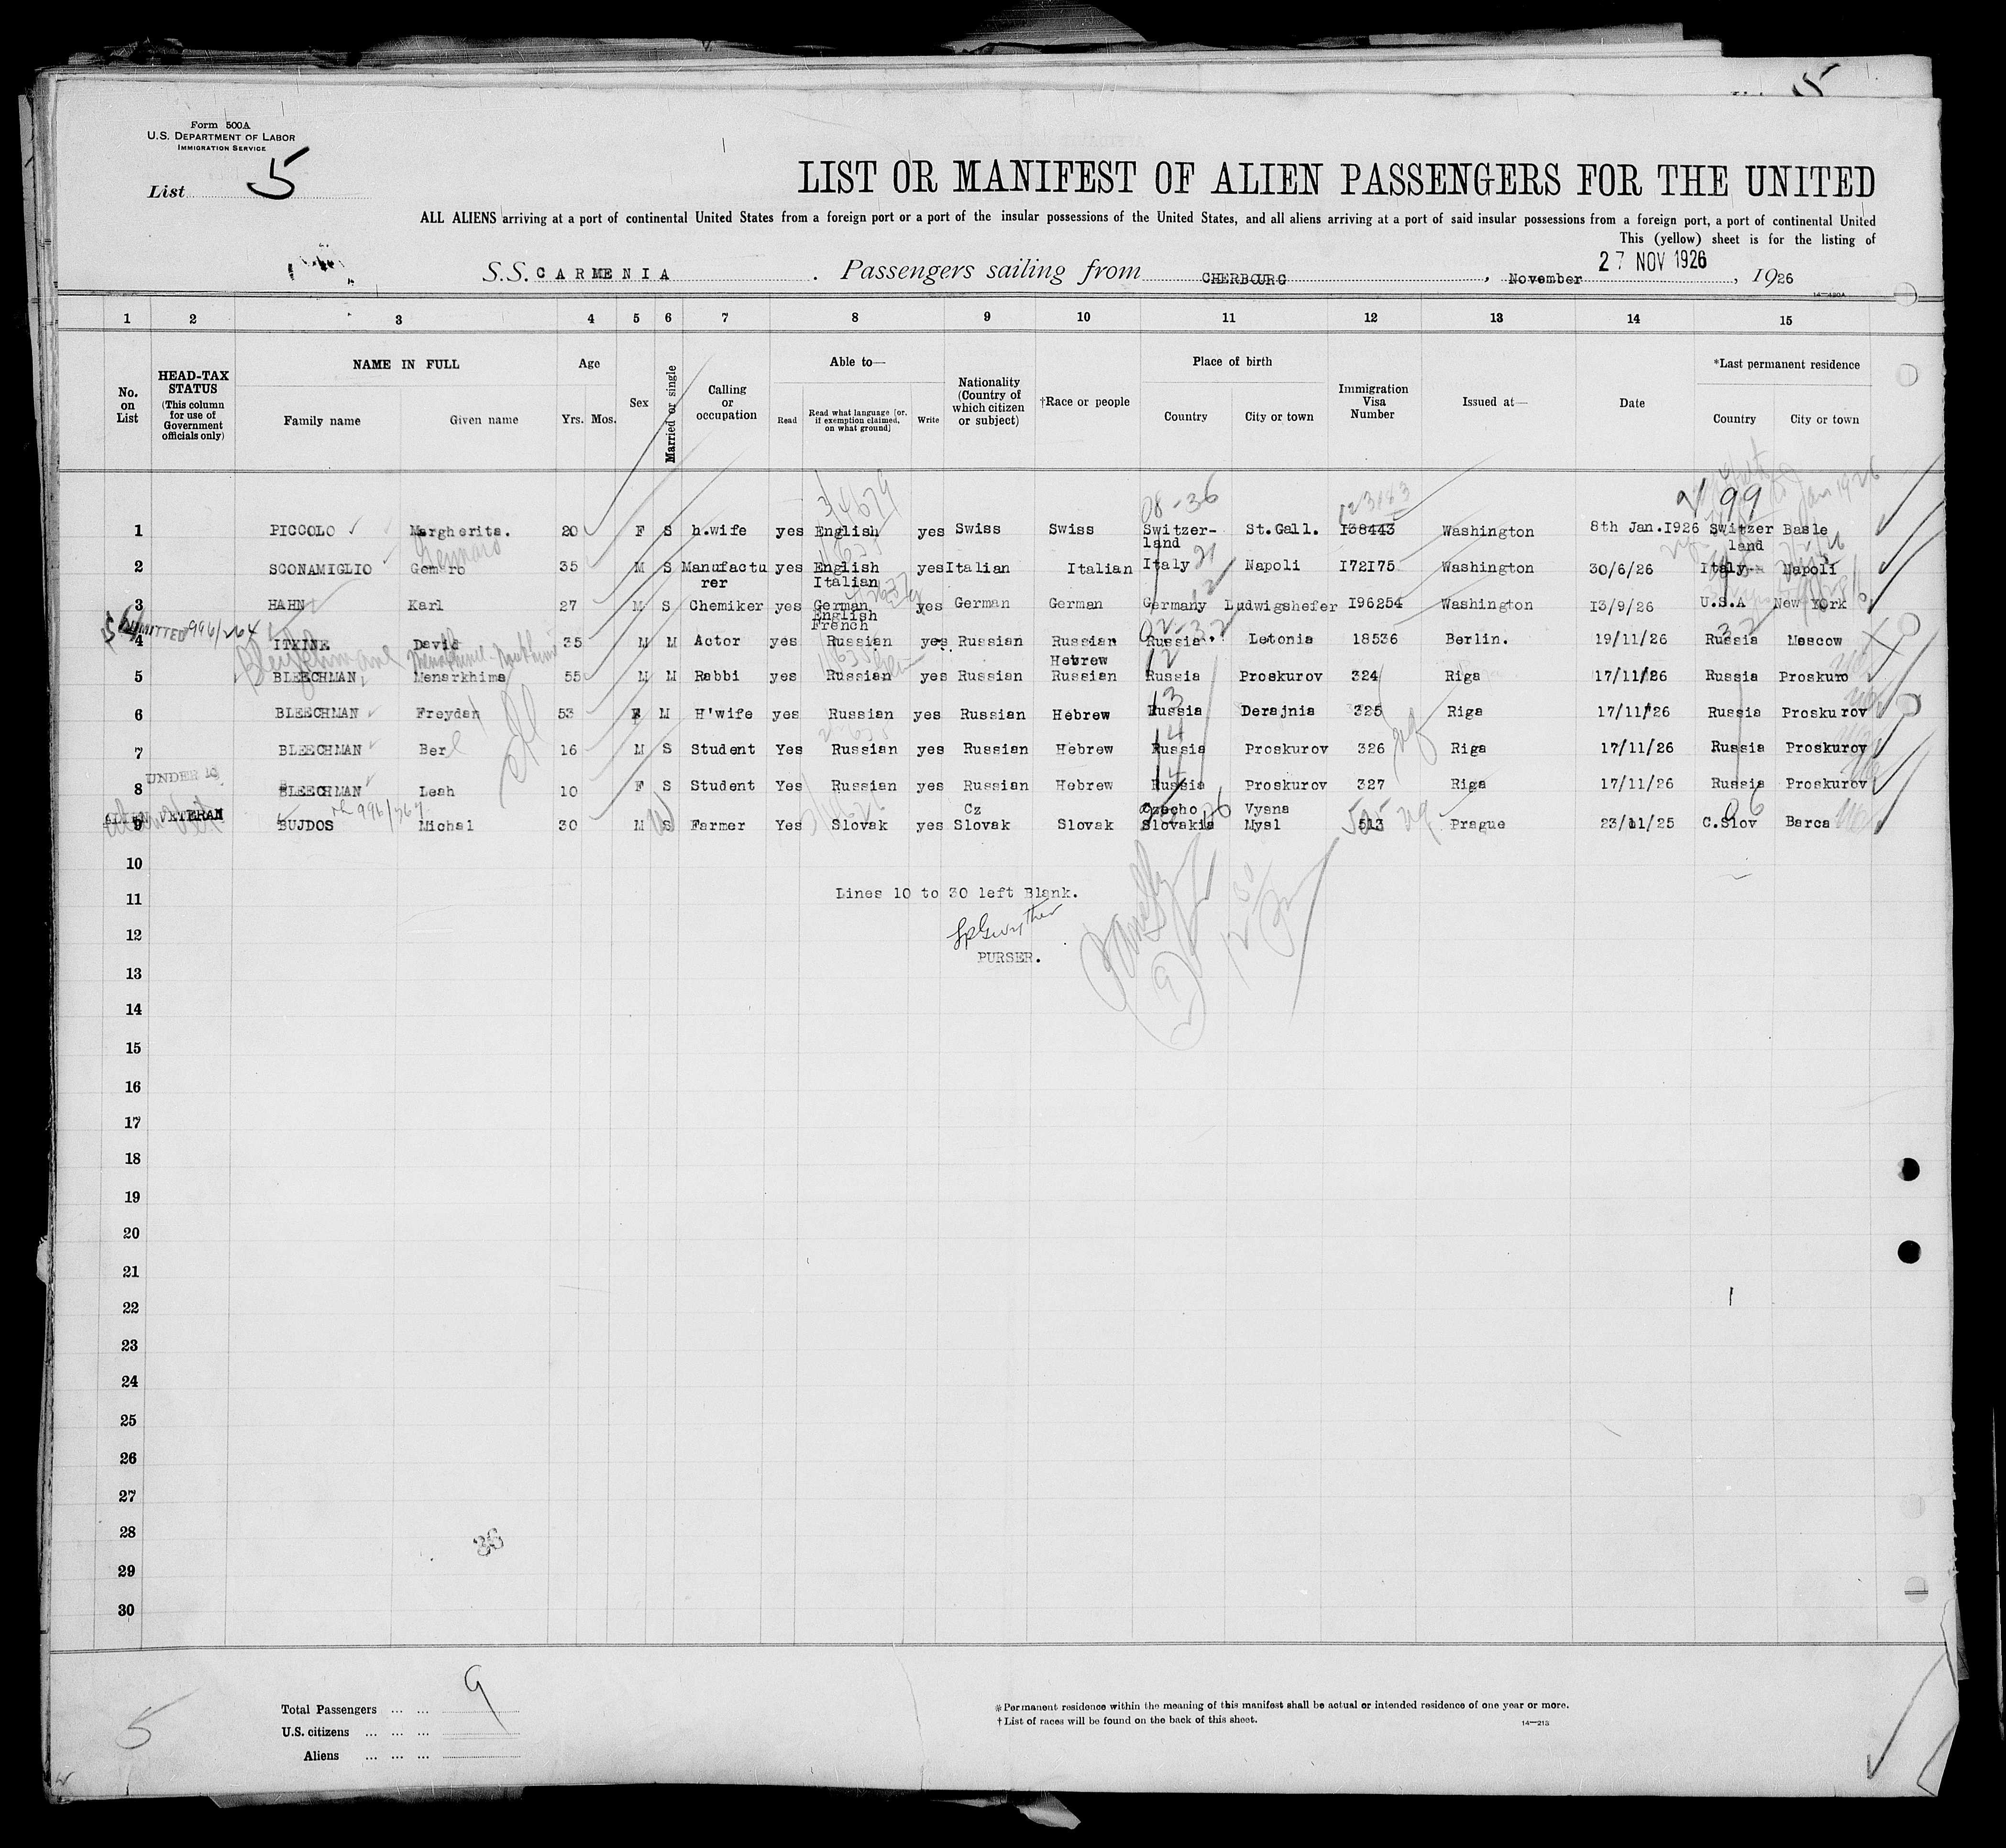 Form 500A
U.S. DEPARTMENT OF LABOR
IMMIGRATION SERVICE
List 5
5
LIST OR MANIFEST OF ALIEN PASSENGERS FOR THE UNITED
ALL ALIENS arriving at a port of continental United States from a foreign port or a port of the insular possessions of the United States, and all aliens arriving at a port of said insular possessions from a foreign port, a port of continental United
This (yellow) sheet is for the listing of
S.S. CARMENIA . Passengers sailing from CHERBOURG, November 27 NOV 1926, 1926
1 2 3 4 5 6 7 8 9 10 11 12 13 14 15
No. on List
HEAD-TAX STATUS (This column for use of Government officials only)
NAME IN FULL Family name Given name
Age Yrs. Mos.
Sex
Married or single
Calling or occupation
Able to— Read Read what language [or, if exemption claimed, on what ground] Write
Nationality (Country of which citizen or subject)
†Race or people
Place of birth Country City or town
Immigration Visa Number
Issued at—
Date
*Last permanent residence Country City or town
3/4679 08-36 99 Jan 1926
1 PICCOLO Margherita. 20 F S h.wife yes English yes Swiss Swiss Switzer-land St.Gall. I38443 Washington 8th Jan.I926 Switzer land Basle
Gennaro
2 SCONAMIGLIO Gemaro 35 M S Manufacturer yes English Italian yes Italian Italian Italy Napoli I72I75 Washington 30/6/26 Italy Napoli
3 HAHN Karl 27 M S Chemiker yes German English French yes German German Germany Ludwigshefer I96254 Washington I3/9/26 U.S.A New York
ADMITTED 996/264
4 ITKINE David 35 M M Actor yes Russian yes Russian Russian Hebrew Russia Letonia 18536 Berlin. 19/11/26 Russia Moscow
5 BLEECHMAN Menarkhima 55 M M Rabbi yes Russian yes Russian Russian Russia Proskurov 324 Riga 17/11/26 Russia Proskuro
6 BLEECHMAN Freydan 53 F M H'wife yes Russian yes Russian Hebrew Russia Derajnia 325 Riga 17/11/26 Russia Proskurov
7 BLEECHMAN Ber 16 M S Student Yes Russian yes Russian Hebrew Russia Proskurov 326 Riga 17/11/26 Russia Proskurov
UNDER 16
8 BLEECHMAN Leah 10 F S Student Yes Russian yes Russian Hebrew Russia Proskurov 327 Riga 17/11/26 Russia Proskurov
ALIEN VETERAN
9 BUJDOS Michal 30 M S Farmer Yes Slovak yes Cz Slovak Slovak Czecho Slovakia Vysna Mysl 513 Prague 23/11/25 C.Slov Barca
10
11 Lines 10 to 30 left Blank.
12
PURSER.
13
14
15
16
17
18
19
20
21
22
23
24
25
26
27
28
29
30
5
Total Passengers ... ... 9
U.S. citizens ... ... ...
Aliens ... ... ...
*Permanent residence within the meaning of this manifest shall be actual or intended residence of one year or more.
†List of races will be found on the back of this sheet.
14—213